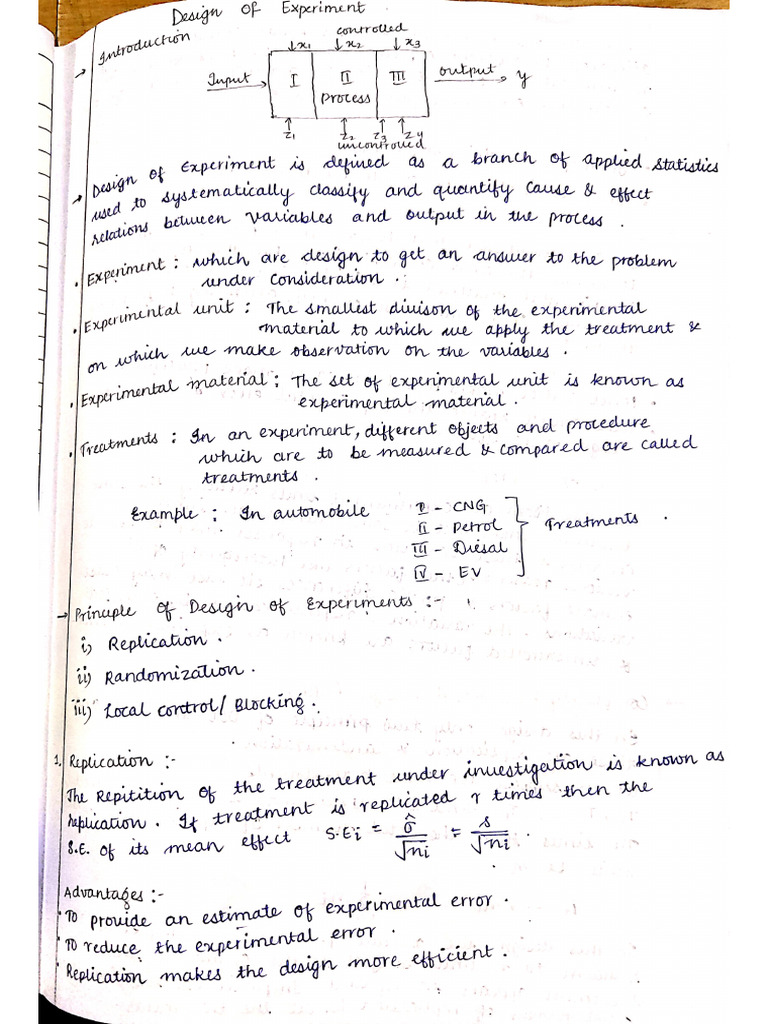 Design of Experiment
→ Introduction
controlled
↓x1 ↓x2 ↓x3
Input → I II III output → y
Process
↑ ↑ ↑ ↑
z1 z2 z3 z4
uncontrolled
→ Design of Experiment is defined as a branch of applied statistics
used to systematically classify and quantify cause & effect
relations between variables and output in the process .
• Experiment : which are design to get an answer to the problem
under consideration .
• Experimental unit : The smallest divison of the experimental
material to which we apply the treatment &
on which we make observation on the variables .
• Experimental material : The set of experimental unit is known as
experimental material .
• Treatments : In an experiment, different objects and procedure
which are to be measured & compared are called
treatments .
Example : In automobile I - CNG
II - Petrol
III - Diesal
IV - EV
Treatments .
→ Principle of Design of Experiments :-
i) Replication .
ii) Randomization .
iii) Local control / Blocking .
1. Replication :-
The Repitition of the treatment under investigation is known as
Replication . If treatment is replicated r times then the
S.E. of its mean effect S.Ei = σ̂/√ni = s/√ni .
Advantages :-
• To provide an estimate of experimental error .
• To reduce the experimental error .
• Replication makes the design more efficient .